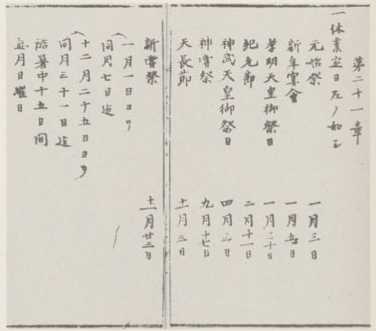 第二十一章
一休業定日左ノ如シ
元始祭 一月三日
新年宴會 一月五日
孝明天皇御祭日 一月三十日
紀元節 二月十一日
神武天皇御祭日 四月三日
神嘗祭 九月十七日
天長節 十一月三日
新嘗祭 十一月廿三日
一月一日ヨリ
同月七日迄
十二月二十五日ヨリ
同月三十一日迄
暑中十五日間
毎月日曜日